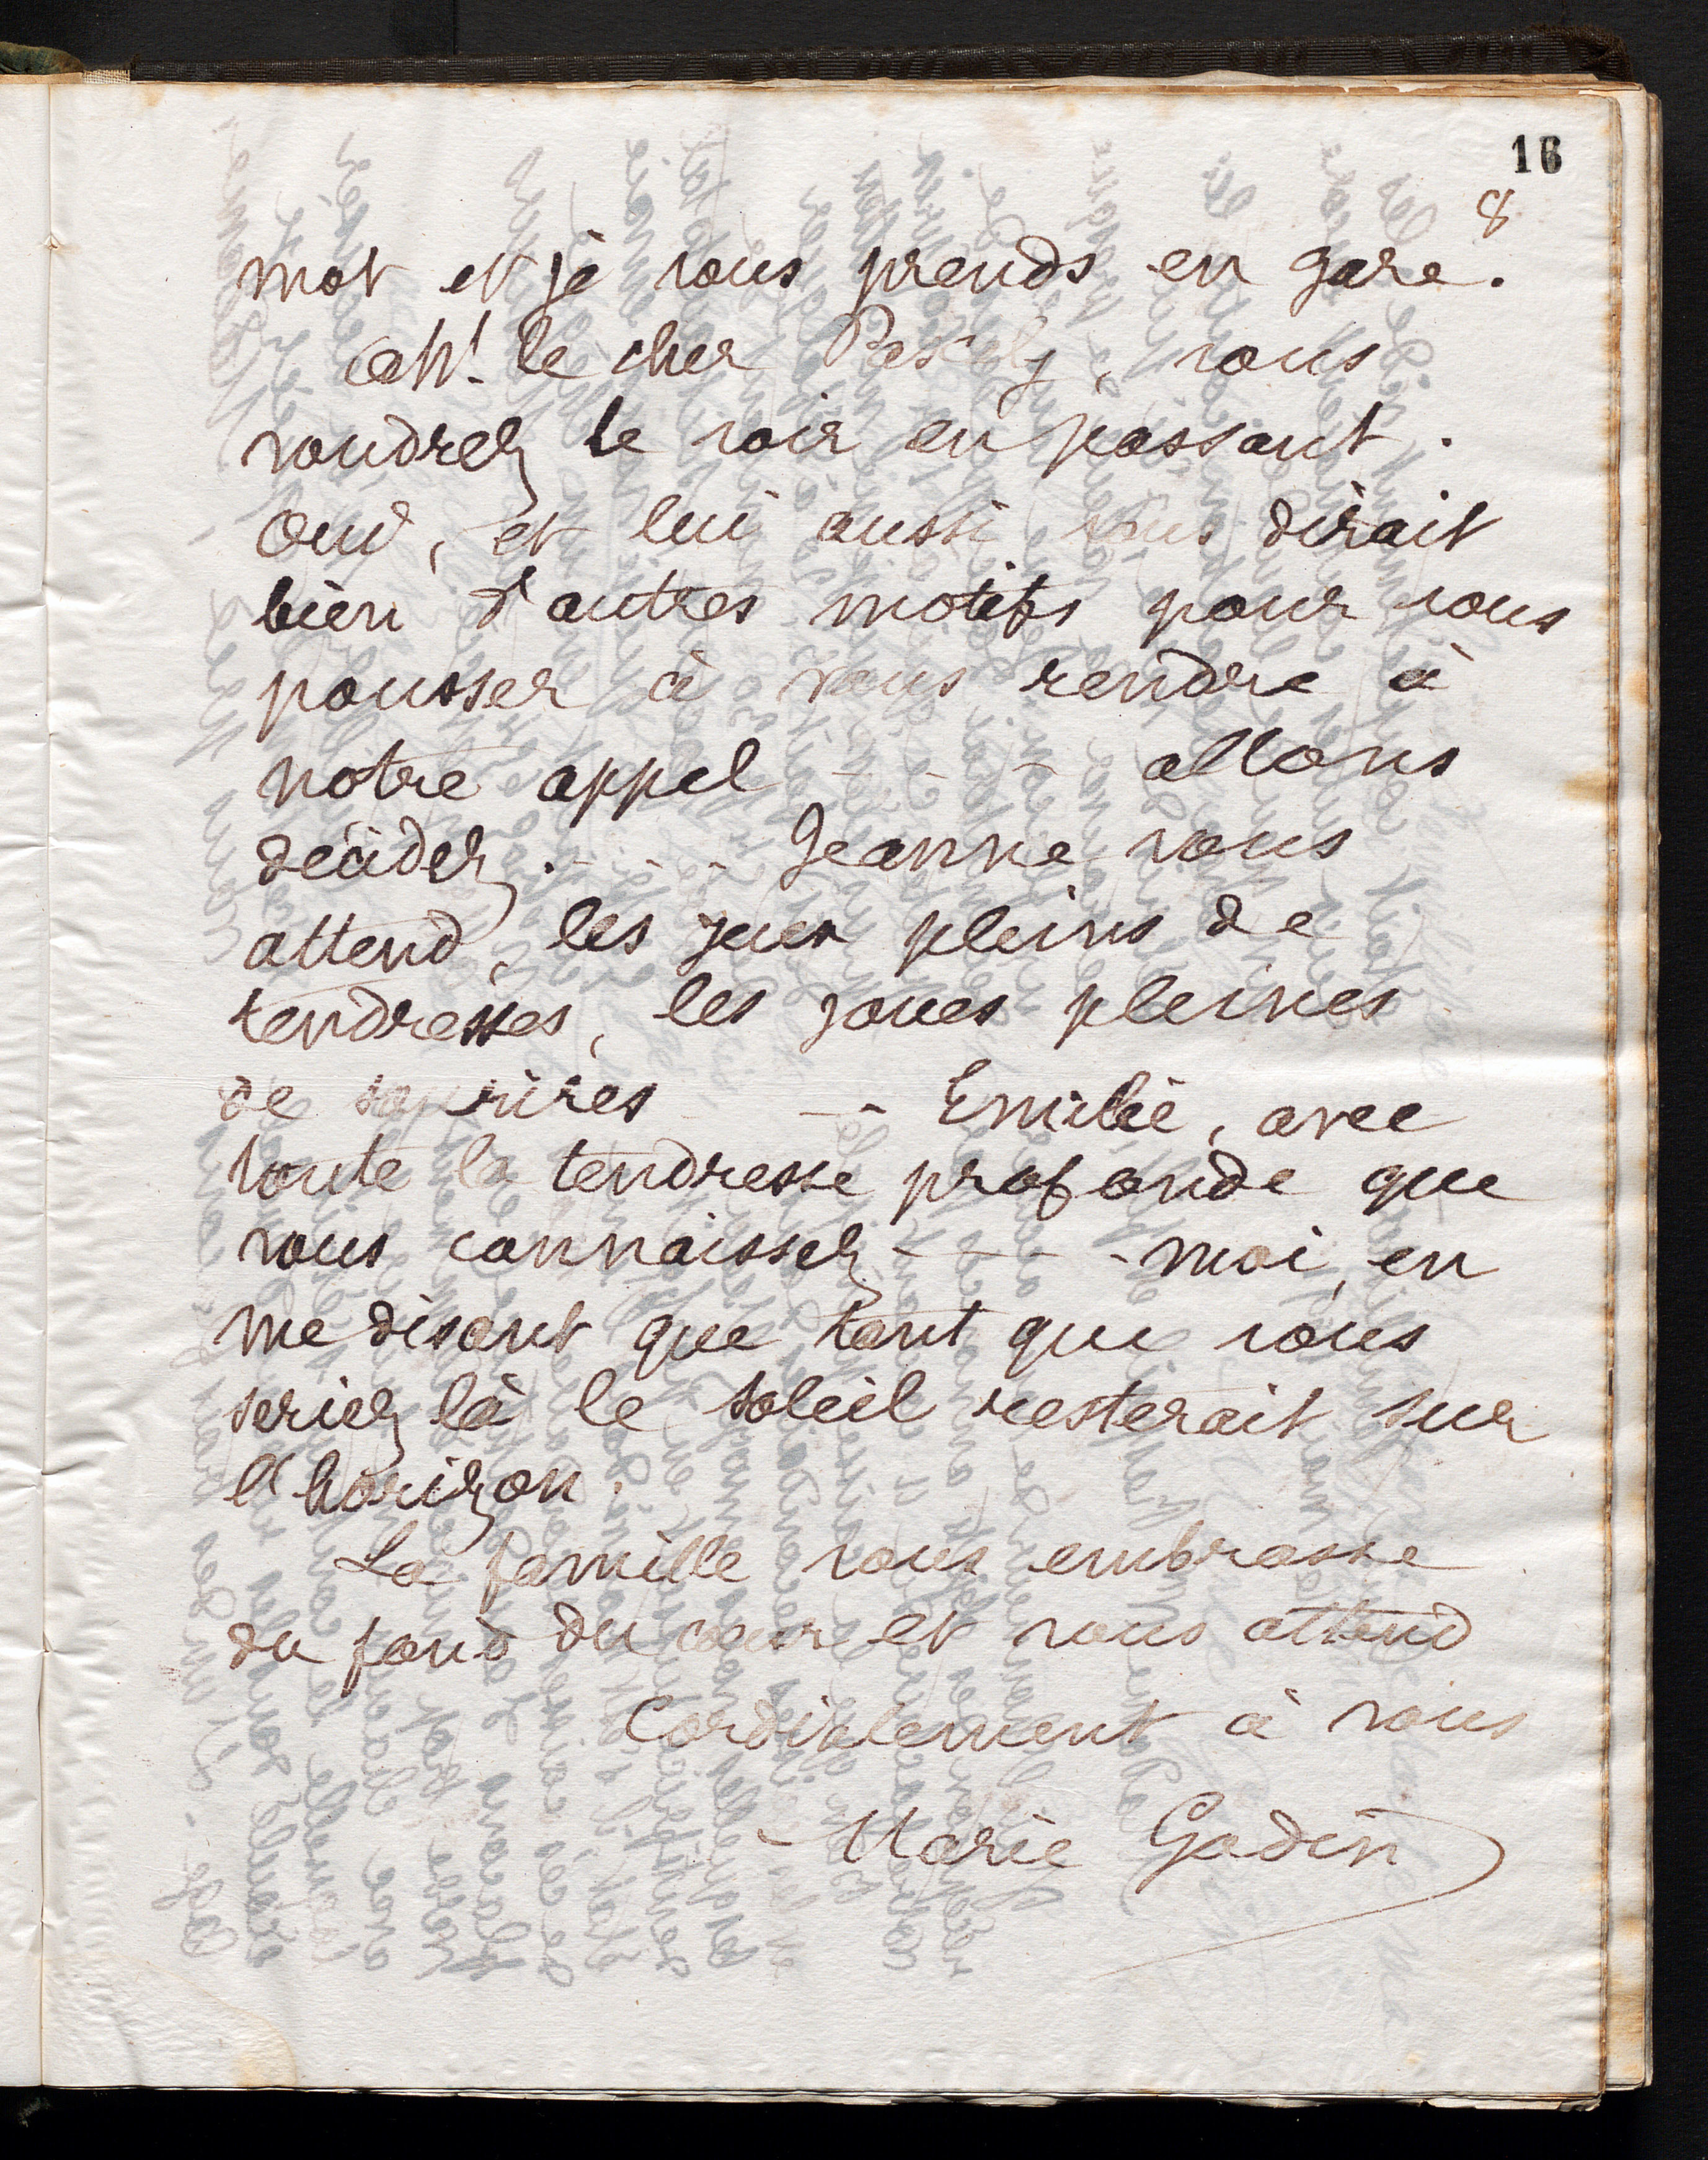 16
8
mot et je vous prends en gare.
Ah! le cher Pascaly, vous
voudrez le voir en passant.
Oui, et lui aussi vous dirait
bien d'autres motifs pour vous
pousser à vous rendre à
notre appel - - - - allons
décidez. - - - Jeanne vous
attend, les yeux pleins de
tendresses, les joues pleines
de sourires - - Emilie, avec
toute la tendresse profonde que
vous connaissez - - - - moi, en
me disant que tant que vous
seriez là le soleil resterait sur
l'horizon.
La famille vous embrasse
du fond du cœur et vous attend
Cordialement à vous
Marie Godin